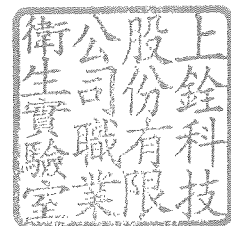 上銓科技
股份有限
公司職業
衛生實驗室